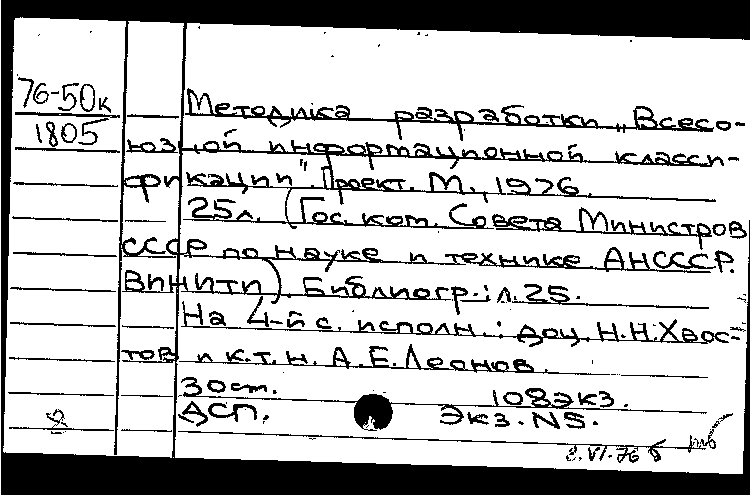 76-50к
1805
Методика разработки „Всесо-
юзной информационной класси-
фикации". Проект. М., 1976.
25л. (Гос. ком. Совета Министров
СССР по науке и технике АНСССР.
ВИНИТИ). Библиогр.: л. 25.
На 4-й с. исполн.: доц. Н.Н. Хвос-
тов и к.т.н. А.Е. Леонов.
30 ст. 108 экз.
ДСП. Экз. N5.
2.VI.76